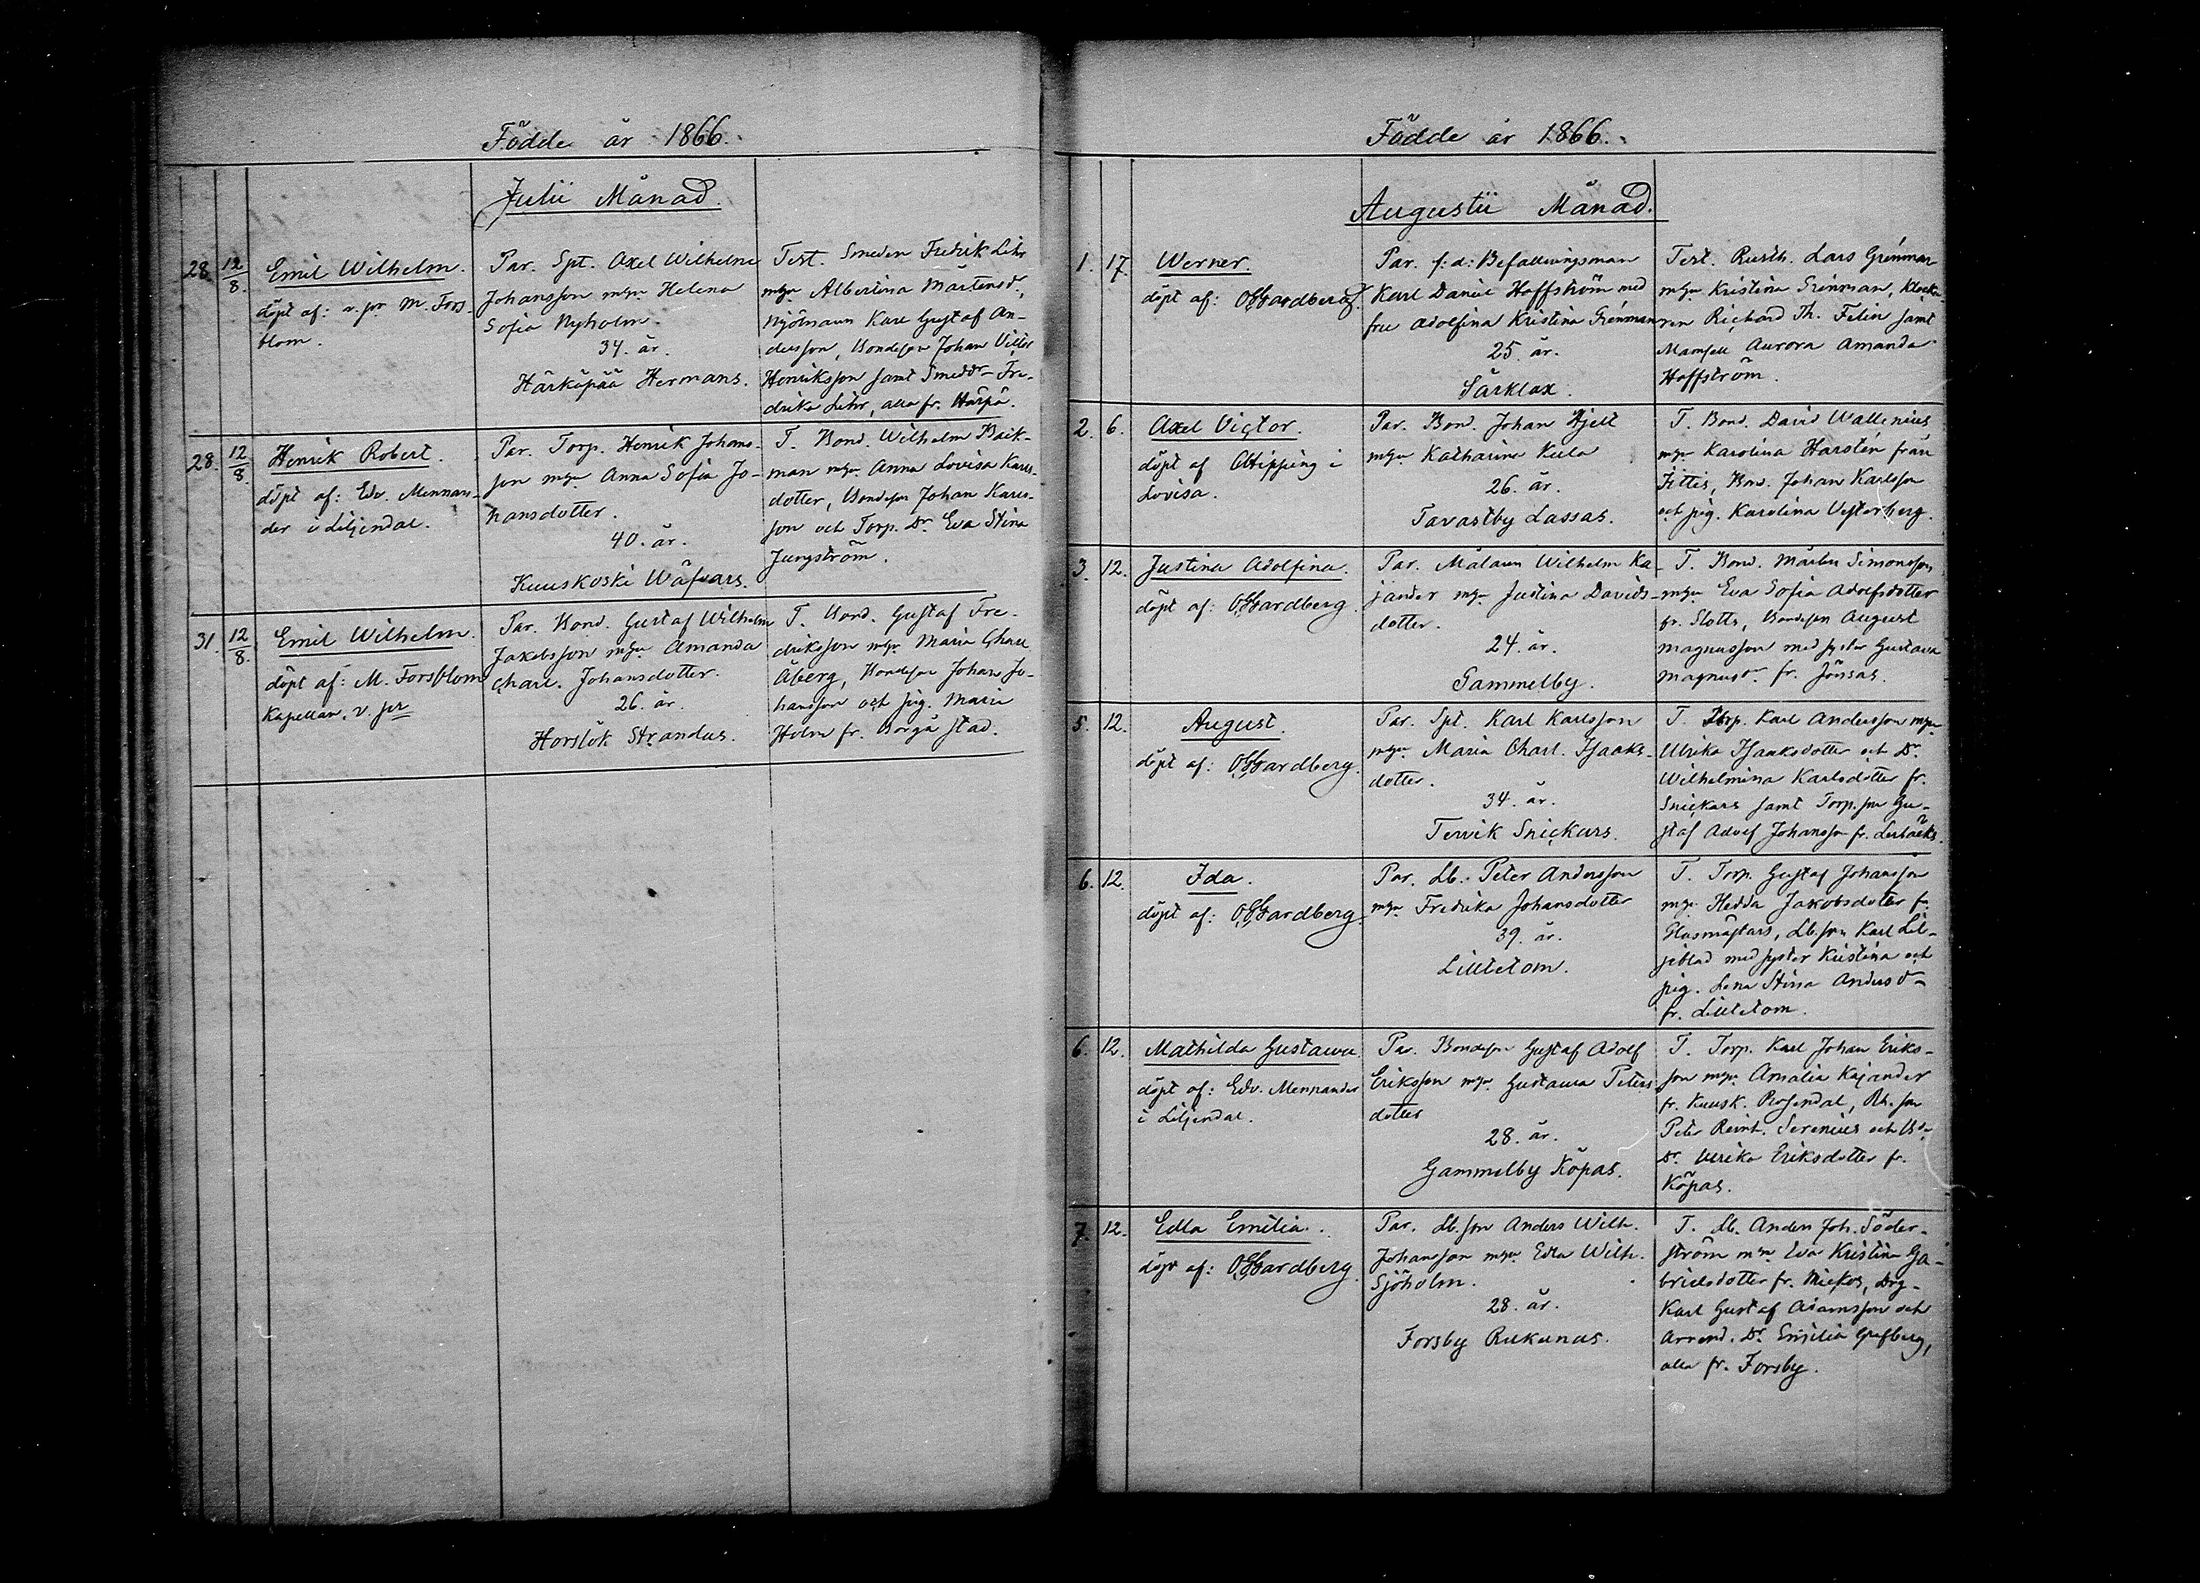 Födde år 1866.
Julii Månad.
28. 12/8. Emil Wilhelm.
döpt af: v. pr M. Fors-
blom.
Par. Spt. Axel Wilhelm
Johansson m hu Helena
Sofia Nyholm.
34. år.
Härköpää Hermans.
Test. Smeden Fredrik Lihr
m hu Albertina Mårtensdr,
Mjölnaren Karl Gustaf An-
dersson, Bondeson Johan Victor
Henriksson samt Smeddr Fre-
drika Lihr, alla fr. Härpä.
28. 12/8 Henrik Robert.
döpt af: Edv. Mennan-
der i Liljendal.
Par. Torp. Henrik Johans-
son m hu Anna Sofia Jo-
hansdotter.
40. år.
Kuuskoski Wäfvars.
T. Bond. Wilhelm Bäck-
man m hu Anna Lovisa Karls-
dotter, Bondeson Johan Karls-
son och Torp. Dr Eva Stina
Jungström.
31. 12/8. Emil Wilhelm.
döpt af: M. Forsblom
Kapellan, v. pr
Par. Bond. Gustaf Wilhelm
Jakobsson m hu Amanda
Charl. Johansdotter.
26. år.
Horslök Strandas.
T. Bond. Gustaf Fre-
driksson m hu Maria Charl.
Åberg, Bondeson Johan Jo-
hansson och pig. Maria
Holm fr. Borgå stad.
Födde år 1866.
Augustii Månad.
1. 17. Werner.
döpt af: O Gardberg.
Par. f: d: Befallningsman
Karl Daniel Hoffström med
fru Adolfina Kristina Grénman
25. år.
Särklax.
Test. Rusth. Lars Grénman
m hu Kristina Grénman, Klocka-
ren Richard Th. Felin samt
Mamsell Aurora Amanda
Hoffström.
2. 6. Axel Victor.
döpt af Hipping i
Lovisa.
Par. Bond. Johan Hjelt
m hu Katharina Kula
26. år.
Tavastby Lassas.
T. Bond. David Wallenius
m hu Karolina Harstén från
Jittis, Bond. Johan Karlsson
och pig. Karolina Vesterberg.
3. 12. Justina Adolfina.
döpt af: O Gardberg.
Par. Målaren Wilhelm Ka-
jander m hu Justina Davids-
dotter.
24. år.
Gammelby.
T. Bond. Mårten Simonsson
m hu Eva Sofia Adolfsdotter
fr. Slotts, Bondeson August
Magnusson med syster Gustava
Magnusdr. fr. Jönsas.
5. 12. August.
döpt af: O Gardberg.
Par. Spt. Karl Karlsson
m hu Maria Charl. Isaaks-
dotter.
34. år.
Tervik Snickars.
T. Torp. Karl Andersson m hu
Ulrika Isaaksdotter och Dr
Wilhelmina Karlsdotter fr.
Snickars samt Torp. son Gu-
staf Adolf Johansson fr. Lerbäcks.
6. 12. Ida.
döpt af: O Gardberg.
Par. Lb. Peter Andersson
m hu Fredrika Johansdotter
39. år.
Lilltetom.
T. Torp. Gustaf Johansson
m hu Hedda Jakobsdotter fr.
Glasmästars, Lb. son Karl Lil-
jeblad med syster Kristina och
pig. Lena Stina Andersdr
fr. Lilltetom.
6. 12. Mathilda Gustawa.
döpt af: Edv. Mennander
i Liljendal.
Par. Bondeson Gustaf Adolf
Eriksson m hu Gustawa Peters-
dotter
28. år.
Gammelby Köpas.
T. Torp. Karl Johan Eriks-
son m hu Amalia Kajander
fr. Kuusk. Rosendal, Rh. son
Peter Reinh. Serenius och Bd.
Dr. Ulrika Eriksdotter fr.
Köpas.
7. 12. Edla Emilia.
döpt af: O Gardberg.
Par. Lb. son Anders Wilh.
Johansson m hu Edla Wilh.
Sjöholm.
28. år.
Forsby Rukanas.
T. Lb. Anders Joh. Söder-
ström m hu Eva Kristina Ga-
brielsdotter fr. Drg-
Karl Gustaf Adamsson och
Arrend. Dr. Emilia
alla fr. Forsby.